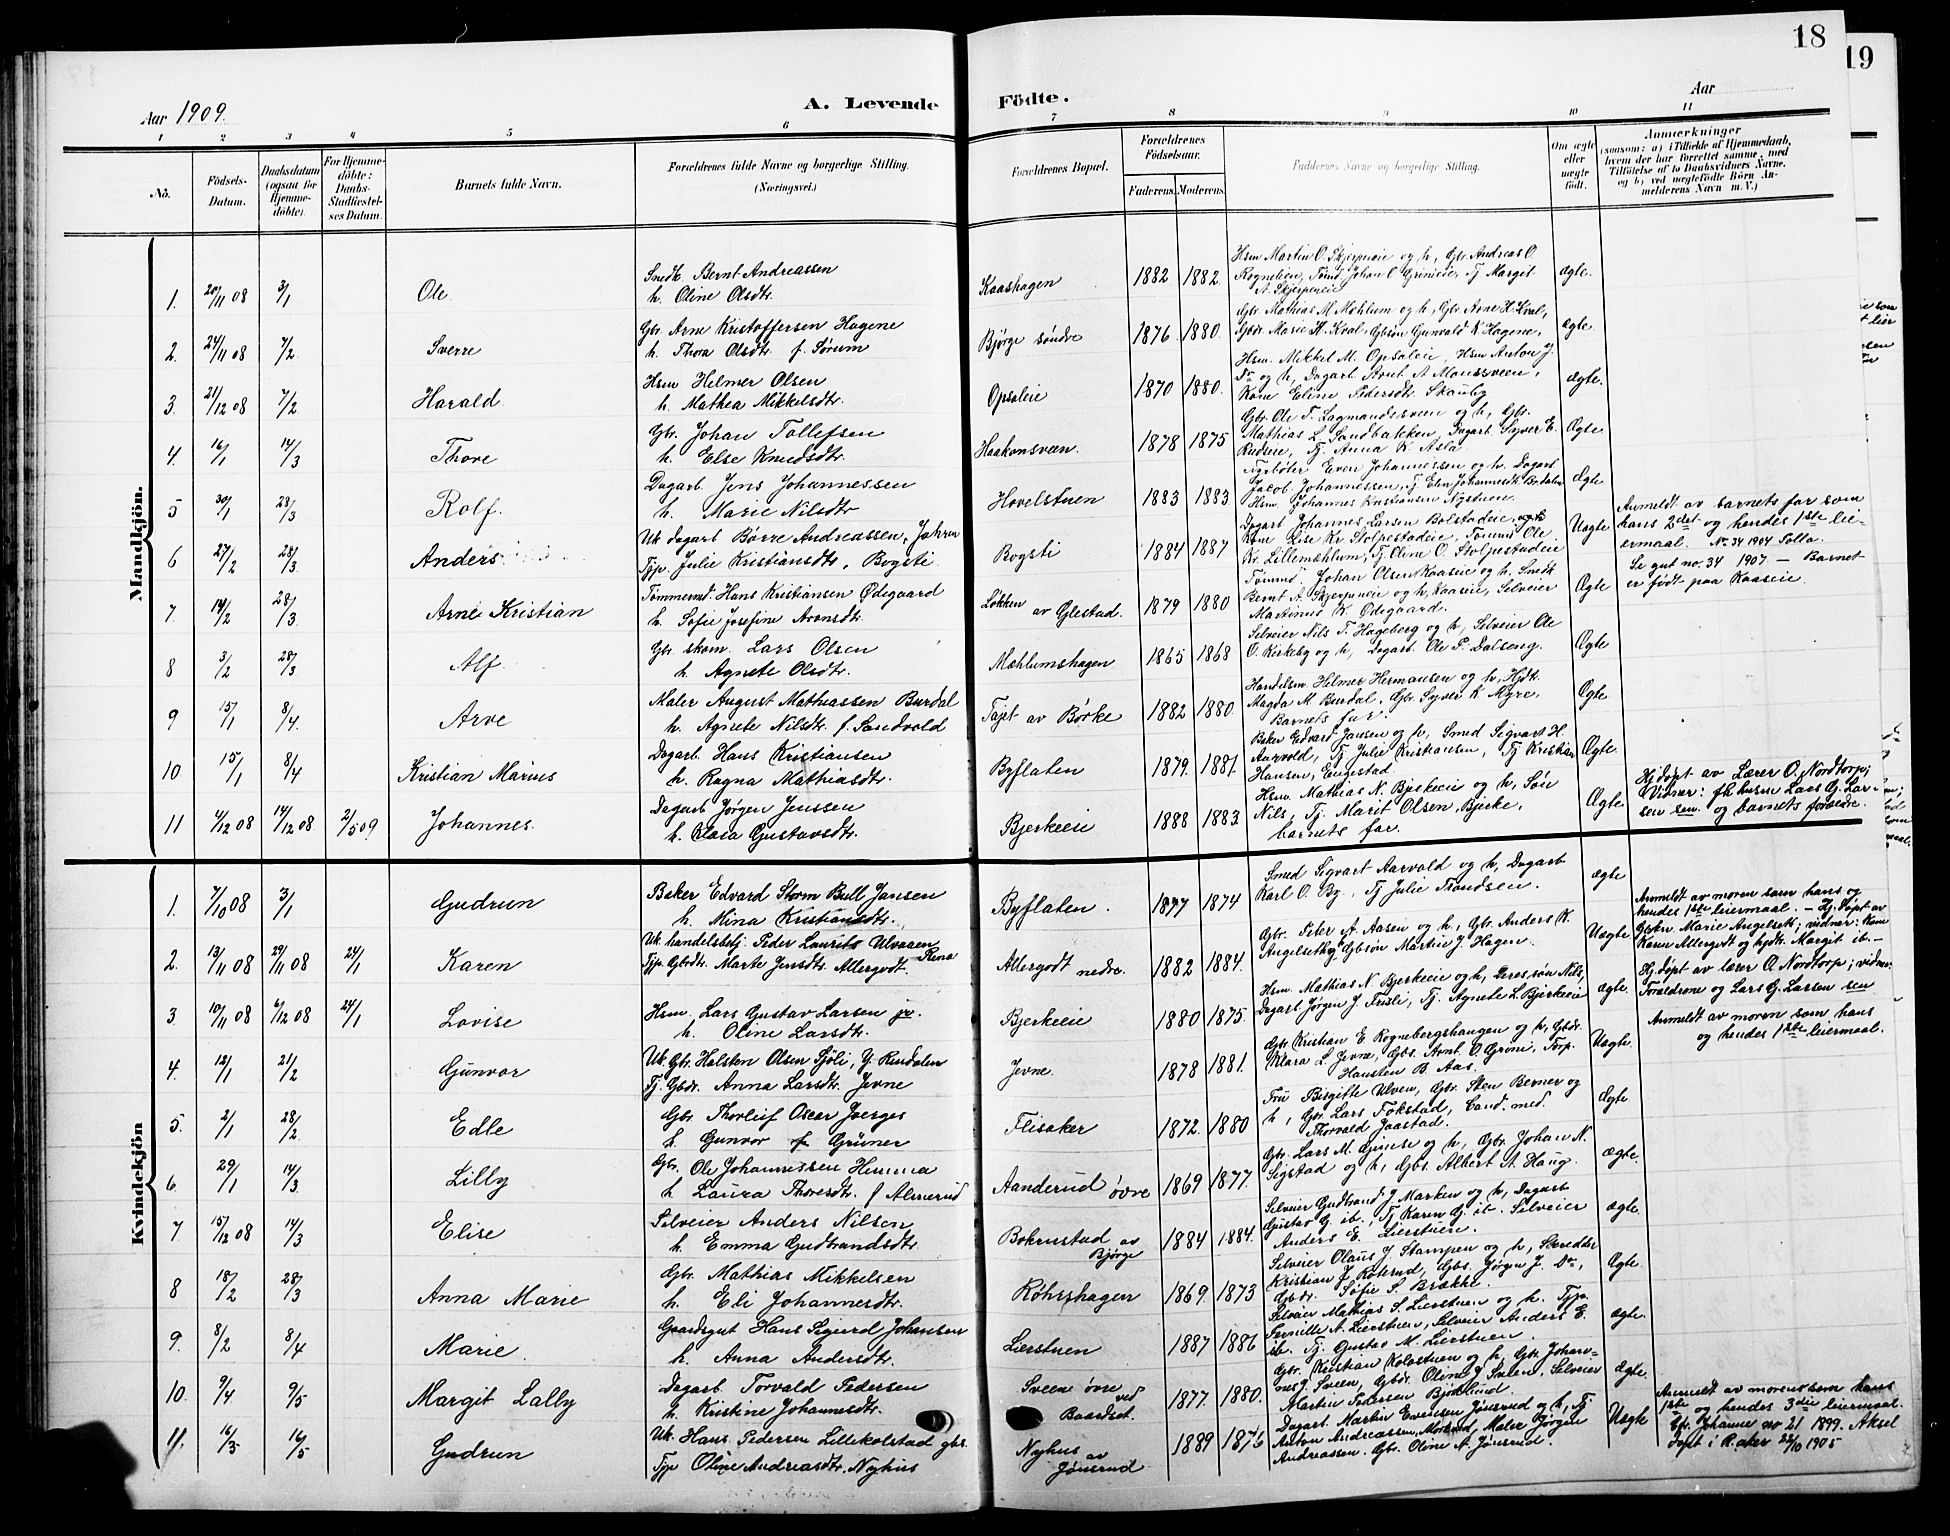 18
19
Aar 1909.
A. Levende Födte.
Aar
1 2 3 4 5 6 7 8 9 10 11
No.
Födsels-Datum.
Daabsdatum (ogsaa for Hjemme-döbte).
For Hjemme-döbte: Daabs-Stadfæstel-ses Datum.
Barnets fulde Navn.
Forældrenes fulde Navne og borgerlige Stilling. (Næringsvei.)
Forældrenes Bopæl.
Forældrenes Födselsaar.
Faderens. Moderens.
Faddernes Navne og borgerlige Stilling.
Om ægte eller uægte födt.
Anmærkninger
(saasom: a) i Tilfælde af Hjemmedaab, hvem der har forrettet samme, med Tilföielse af to Daabsvidners Navne, og b) ved uægtefödte Börn An-melderens Navn m. V.)
Mandkjön.
1. 20/11 08 3/1 Ole. Snedk. Bernt Andreassen
h. Oline Olsdtr. Kaashagen 1882 1882. Hsm Martin O. Skjerpeneie og h, Gbr. Andreas O.
Rognelien, Tømd. Johan O. Grimeie, Tj. Margit
A. Skjerpeneie ægte.
2. 24/11 08 7/2 Sverre Gbr. Arne Kristoffersen Hagene
h. Thora Olsdtr. f. Sørum Bjørge søndre 1876 1880. Gbr. Mathias M. Mæhlum og h, Gbr. Arne H. Kval,
Gbdr. Marie H. Kval, Gbsøn Gunvald K. Hagene, ægte.
3. 21/12 08 7/2 Harald. Hsm Helmer Olsen
h. Mathea Mikkelsdtr. Opsaleie 1870 1880. Hsm. Mikkel M. Opsaleie, Hsm Anton J.
Do og h, Dagarb. Arnt A. Monssveen,
Kone Eline Pedersdtr. Skauby ægte.
4. 16/1 14/3 Thore Gbr. Johan Tollefsen
h. Else Knudsdtr. Haakonsveen. 1878 1875 Gbr. Ole T. Lagmandssveen og h, Gbr.
Mathias L. Sandbakken, Dagarb. Syver E.
Rudseie, Tj. Anna K. Asla Ægte
5 30/1 28/3 Rolf. Dagarb. Jens Johannessen
h. Marie Nilsdtr Hovelstuen 1883 1883 Even Johannessen og h. Dagarb.
Jacob Johannessen, Tj. Johannesdtr.
Hsm. Johannes Nystuen. Ægte
6 27/2 28/3 Anders Uk. dagarb. Børre Andreassen,
Tjp. Julie Kristiansdtr. Bogsti. Bogsti 1884 1887 Dagarb. Johannes Larsen Bolstadeie,
Kone Lise Kr. Stolpestadeie, Tømmd. Ole
Kr. Lillemæhlum, Tj. Oline O. Stolpestadeie Uægte Anmeldt av barnets far som
hans 2det og hendes 1ste lei-
ermaal. No. 34 1904
Se gut no. 34 1907. — Barnet
er født paa Kaaseie.
7 14/2 28/3 Arne Kristian Tømmermd. Hans Kristiansen Ødegaard
h. Sofie Josefine Aronsdtr. Løkken av Glestad. 1879 1880 Tømmd. Johan Olsen Kaaseie og h. Snedk
Bernt A. Skjerpeneie og h, Kaaseie, Selveier
Martinus K. Ødegaard. Ægte
8 3/2 28/3 Alf. Gbr. skom. Lars Olsen
h. Agnete Olsdtr. Mæhlumshagen 1865 1868 Selveier Nils T. Hageberg og h, Selveier Ole
O. Kirkeby og h, Dagarb. Ole P. Dalseng. Ægte
9 15/1 8/4 Arve Maler August Mathiassen Burdal
h. Agnete Nilsdtr. f. Sandvold Tajet av Børke 1882 1880 Handelsm. Helmer Hermansen og h, Hjdtr.
Magda M. Burdal, Gbr. Syver K. Myre,
Barnets far. Ægte
10 15/1 8/4 Kristian Marius Dagarb. Hans Kristiansen
h. Ragna Mathiasdtr. Byflaten 1879. 1881. Baker Edvard Jansen og h, Smed Sigvart H.
Aarvold, Tj. Julie Kristiansen, Tj. Kristian
Hansen, Engestad. Ægte.
11 4/12 08 14/12 08 2/5 09 Johannes. Dagarb Jørgen Jenssen
h. Clara Gustavsdtr. Bjerkeeie 1888 1883. Hsm. Mathias N. Bjerkeeie og h, Søn
Nils, Tj. Marit Olsen, Bjerke,
barnets far. Ægte. Hj.døpt av Lærer O. Nordtorp;
Vidner: Lars G. Lar-
sen sen. og barnets forældre.
Kvindekjön
1. 7/10 08 3/1 Gudrun Baker Edvard Storm Bull Jansen
h. Mina Kristiansdtr. Byflaten. 1877 1874 Smed Sigvart Aarvold og h, Dagarb
Karl O. By, Tj Julie Trondsen. ægte
2. 13/11 08 29/11 08 24/1 Karen Uk handelsbetj. Peder Laurits Ulvaaen Rena
Tjp. Gbdtr. Marte Jensdtr. Allergodt. Allergodt nedre. 1882 1884. Gbr. Peter A. Aasen og h, Gbr. Anders K.
Angelseth Gbsøn Martin J. Hagen. Uægte Anmeldt av moren som hans og
hendes 1ste leiermaal. — Hj. døpt av
Gbkr. Marie Angelseth; vidner: Kone
Karen Allergodt og hjdtr. Margit ib. —
3. 10/11 08 6/12 08 24/1 Lovise Hsm. Lars Gustav Larsen jr.
h. Oline Larsdtr. Bjerkeie 1880 1875. Hsm. Mathias N. Bjerkeie og h, Deres søn Nils,
Dagarb. Jørgen J. Frisli, Tj. Agnete L. Bjerkeeie ægte. Hj. døpt av lærer O. Nordtorp; vidner:
Foreldrene og Lars G. Larsen sen
4. 12/1 21/2 Gunvor Uk. Gbr. Halsten Olsen Sjøli, Y. Rendalen
Tj. Gbdr. Anna Larsdtr. Jevne Jevne. 1878 1881. Gbr. Kristian E. Rognebergshaugen og h, Gbdr.
Klara L. Jevne, Gbs. Arnt O. Grimi, Tjp.
Hansten B. Aas. Uægte. Anmeldt av moren som hans
og hendes 1ste leiermaal.
5. 2/1 28/2 Edle Gbr. Thorleif Oscar Sverges
h. Gunvor f. Grüner Flisaker 1872. 1880 Fru Birgitte Ulven, Gbr. Sten Berner og
h, Gbr. Lars Fokstad, Cand. med.
Thorvald Jaastad. Ægte
6. 29/1 14/3 Lilly Gbr. Ole Johannessen Himma
h. Laura Thoresdtr. f. Almerud Aanderud øvre 1869 1877. Gbr. Lars M. Gimse og h, Gbr. Johan N.
Sigstad og h, Gbs. Albert A. Haug. ægte.
7 15/12 08 14/3 Elise Selveier Anders Nilsen
h. Emma Gudbrandsdtr. Bokrustad av Bjørge 1884 1884. Selveier Gudbrand J. Marken og h, Dagarb
Gustav G. ib., Tj Karen G. ib. Selveier
Anders E. Lierstuen. ægte.
8 18/2 28/3 Anna Marie Gbr. Mathias Mikkelsen
h. Eli Johannesdtr. Røhrshagen 1869. 1873 Selveier Olaus J Stampen og h, Skrædder
Kristian J. Røterud, Gbs. Jørgen J. Do,
Gbdr. Sofie S. Brække. Ægte.
9. 8/2 8/4 Marie Gaardsgut Hans Sigurd Johansen
h. Anna Andersdtr. Lierstuen 1887 1886 Selveier Mathias S. Lierstuen og h. Tjp.
Pernille A. Lierstuen, Selveier Anders E.
ib. Tj. Gustav M. Lierstuen. ægte.
10. 9/4 9/5 Margit Lalby Dagarb. Torvald Pedersen
h. Kristine Johannesdtr. Sveene øvre ved Baardset. 1877. 1880. Gbr. Kristian Kolostuen og h, Gbr. Johan-
nes J. Sveen, Gbdr. Oline J. Sveen, Selveier
Martin Pedersen Bjørklund. Ægte.
11. 16/3 16/5 Gudrun Uk. Hans Pedersen Lillekolstad gbs.
Tjp Oline Andreasdtr. Nyhus Nyhus av Jønsrud 1889 1876 Dagarb. Martin Evensen Jønsrud og h, Tj
Anton Andreassen, Maler Jørgen
Andreassen. Gbr. Oline A. Jønsrud. Uægte Anmeldt av moren som hans
1ste og hendes 3die leiermaal.
Johanne no 21 1899. Aksel
døpt i R.aker 22/10 1905